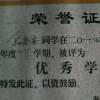 荣誉证
同学在二〇一
年度 学期，被评为
优秀学
特发此证，以资鼓励